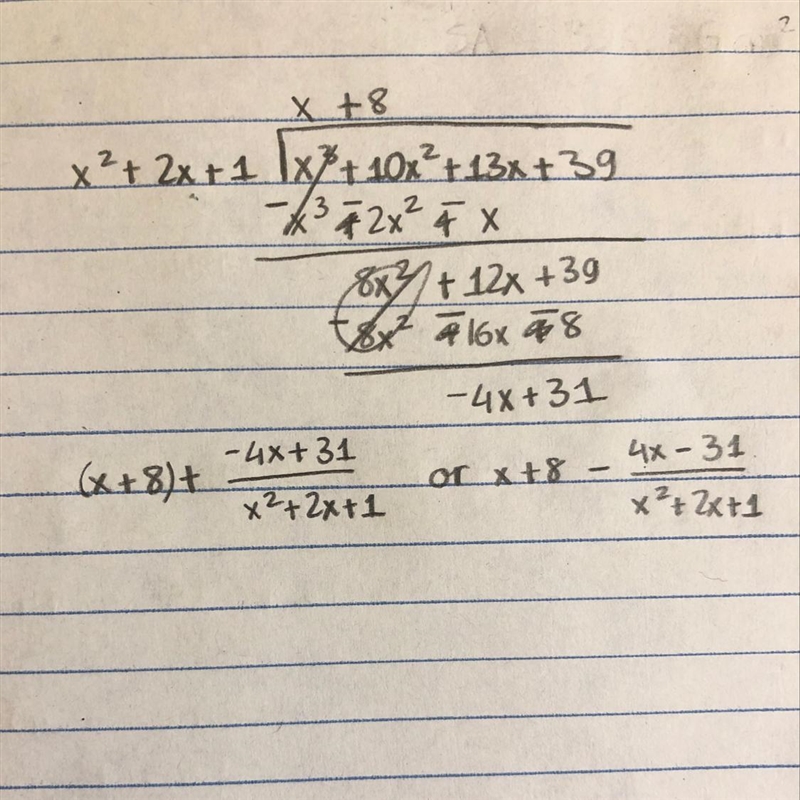 x + 8
x² + 2x + 1 √x³ + 10x² + 13x + 39
- x³ - 2x² - x
8x² + 12x + 39
- 8x² - 16x - 8
-4x + 31
(x + 8) + (-4x + 31)/(x² + 2x + 1) or x + 8 - (4x - 31)/(x² + 2x + 1)